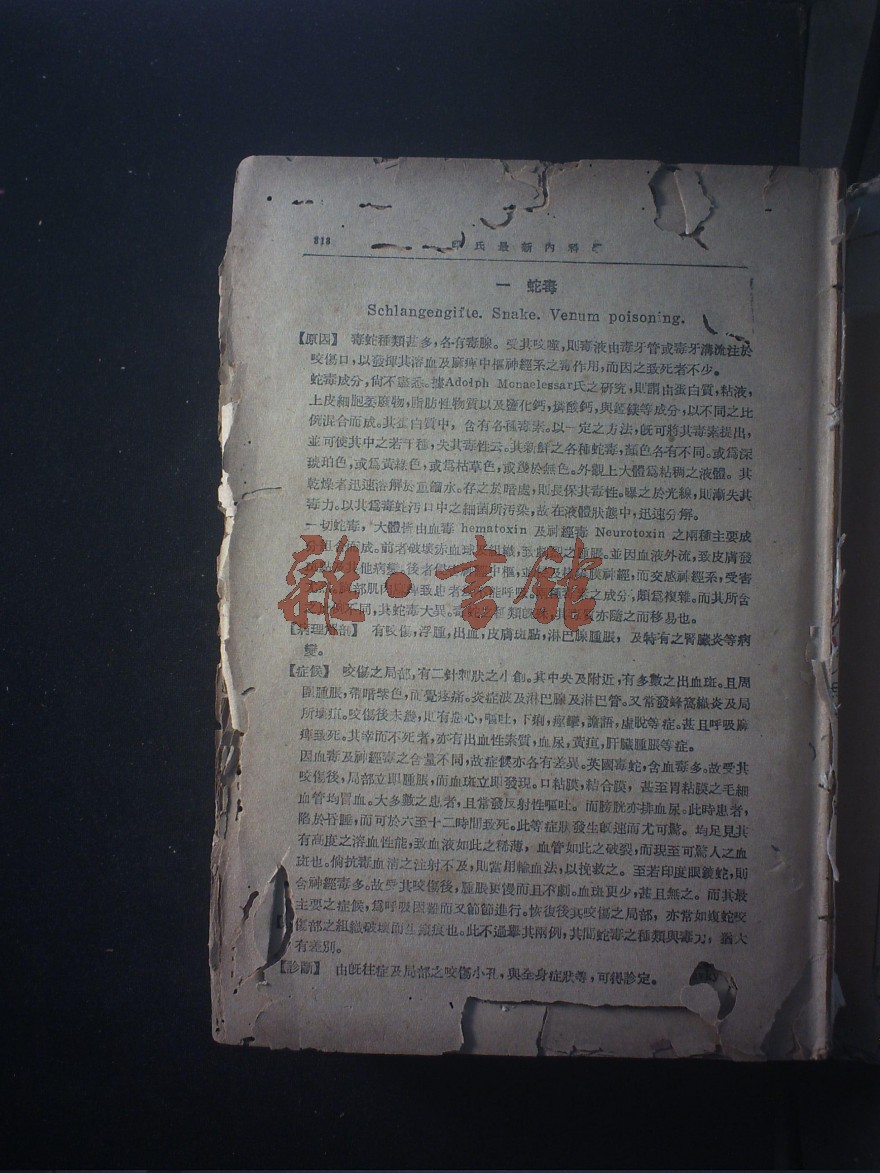 818
氏最新內科學
一 蛇毒
Schlangengifte. Snake. Venum poisoning.
【原因】 毒蛇種類甚多,各有毒腺。受其咬噬,則毒液由毒牙管或毒牙溝流注於
咬傷口,以發揮其溶血及麻痺中樞神經系之毒作用,而因之致死者不少。
蛇毒成分,尙不靈悉。據Adolph Monaelessar氏之研究,則謂由蛋白質,粘液,
上皮細胞萎廢物,脂肪性物質以及鹽化鈣,燐酸鈣,與錏鎂等成分,以不同之比
例混合而成。其蛋白質中,含有各種毒素。以一定之方法,旣可將其毒素提出,
並可使其中之若干種,失其毒性云。其新鮮之各種蛇毒,顏色各有不同。或爲深
琥珀色,或爲黃綠色,或爲枯草色,或幾於無色。外觀上大體爲粘稠之液體。其
乾燥者迅速溶解於重餾水。存之於暗處,則長保其毒性。曝之於光線,則漸失其
毒力。以其爲毒蛇污口中之細菌所污染,故在液體狀態中,迅速分解。
一切蛇毒,大體皆由血毒 hematoxin 及神經毒 Neurotoxin 之兩種主要成
分組合而成。前者破壞赤血球及組織,致劇烈之腫脹。並因血液外流,致皮膚發
其他病變。後者侵 中樞, 膜神經,而交感神經系,受害
部肌肉麻痺致患者 能呼吸。 之成分,頗爲複雜。而其所含
不同,其蛇毒大異。 種類旣殊,其毒質亦隨之而移易也。
【病理解剖】 有咬傷,浮腫,出血,皮膚斑點,淋巴腺腫脹,及特有之腎臟炎等病
變。
【症候】 咬傷之局部,有二針刺狀之小創。其中央及附近,有多數之出血斑。且周
圍腫脹,帶暗紫色,而覺疼痛。炎症波及淋巴腺及淋巴管。又常發蜂窩織炎及局
所壞疽。咬傷後未幾,則有惡心,嘔吐,下痢,痙攣,譫語,虛脫等症。甚且呼吸麻
痺致死。其幸而不死者,亦有出血性素質,血尿,黃疸,肝臟腫脹等症。
因血毒及神經毒之含量不同,故症候亦各有差異。英國毒蛇,含血毒多。故受其
咬傷後,局部立即腫脹,而血斑立即發現。口粘膜,結合膜,甚至胃粘膜之毛細
血管均冒血。大多數之患者,且當發反射性嘔吐。而膀胱亦排血尿。此時患者,
陷於昏睡,而可於六至十二時間致死。此等症狀發生旣速而尤可驚。均足見其
有高度之溶血性能,致血液如此之稀薄,血管如此之破裂,而現至可驚人之血
斑也。倘抗毒血清之注射不及,則當用輸血法,以挽救之。至若印度眼鏡蛇,則
含神經毒多。故受其咬傷後,腫脹更慢而且不劇。血斑更少,甚且無之。而其最
主要之症候,爲呼吸困難而又節節進行。恢復後其咬傷之局部,亦常如蝮蛇咬
傷部之組織破壞而生瘢痕也。此不過舉其兩例,其間蛇毒之種類與毒力,猶大
有差別。
【診斷】 由旣往症及局部之咬傷小孔,與全身症狀等,可得診定。
雜·書館